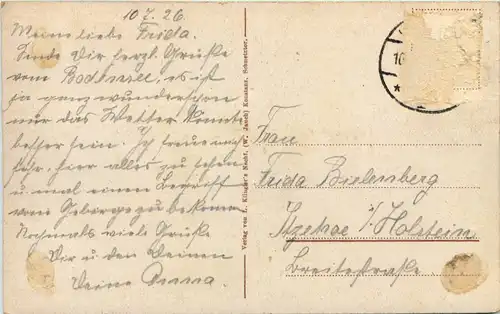 10.7.26.
Meine liebe Frida.
Sende Dir herzl. Grüße
vom Bodensee, es ist
ja ganz wunderschön
nur das Wetter könnte
besser sein. Ich freue mich
sehr, hier alles zu sehen
u. mal einen Begriff
vom Gebirge zu bekommen
Nochmals viele Grüße
Dir u. den Deinen
Deine Emma.
Verlag von L. Klinger's Nachf. (W. Jauch) Konstanz, Schneckler.
10
Frau
Frida Bielenberg
Itzehoe i/Holstein
Breitestraße